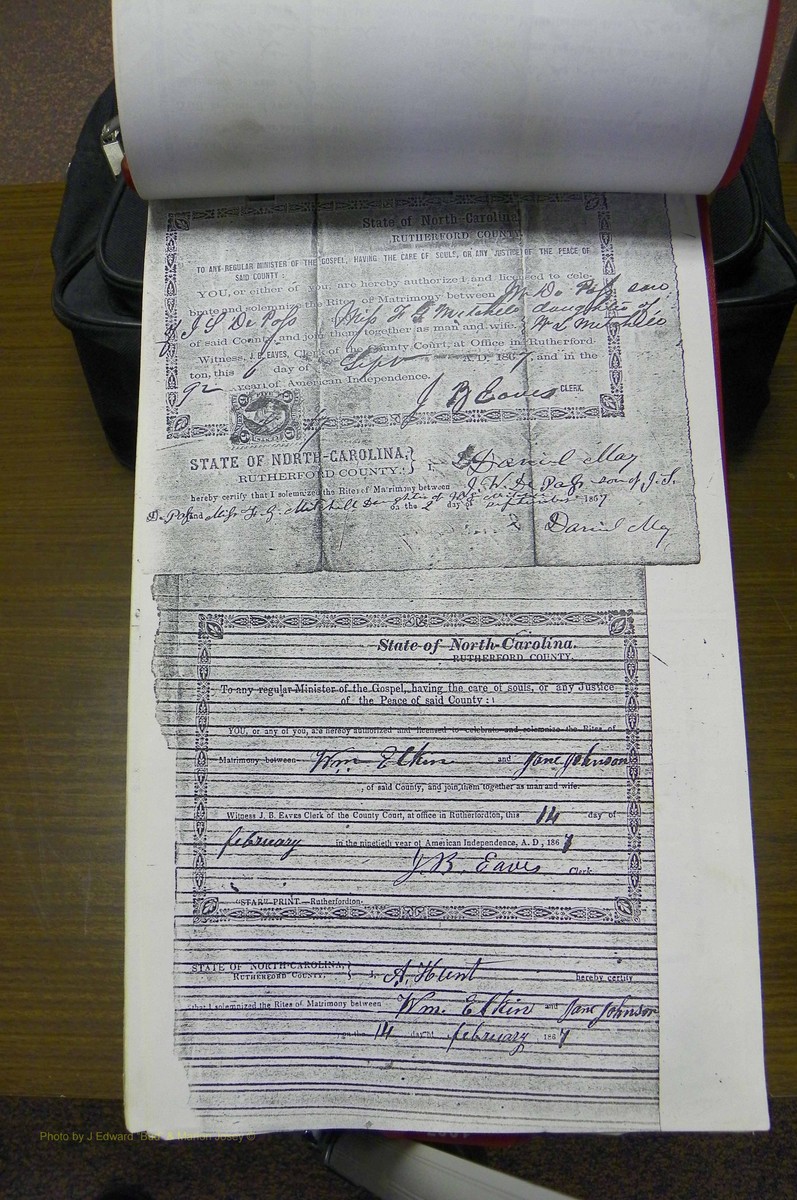 State of North-Carolina
RUTHERFORD COUNTY.
TO ANY REGULAR MINISTER OF THE GOSPEL, HAVING THE CARE OF SOULS, OR ANY JUSTICE OF THE PEACE OF
SAID COUNTY:
YOU, or either of you, are hereby authorized and licensed to cele-
brate and solemnize the Rites of Matrimony between De Pass son
of J S De Pass Miss F G Mitchell daughter of
of said County, and join them together as man and wife. Mitchell
Witness, J. B. EAVES, Clerk of the County Court, at Office in Rutherford-
ton, this 6 day of Sept A.D. 1867, and in the
92 year of American Independence.
J B Eaves CLERK.
STATE OF NORTH-CAROLINA,
RUTHERFORD COUNTY. I, Daniel May
hereby certify that I solemnized the Rites of Matrimony between J. W. De Pass son of J. S.
De Pass and Miss F. G. Mitchell Daughter of
on the day of September 1867
Daniel May
State of North-Carolina.
RUTHERFORD COUNTY.
To any regular Minister of the Gospel, having the care of souls, or any Justice
of the Peace of said County:
YOU, or any of you, are hereby authorized and licensed to celebrate and solemnize the Rites of
Matrimony between Wm Elkin and Jane Johnson
, of said County, and join them together as man and wife.
Witness J. B. EAVES Clerk of the County Court, at office in Rutherfordton, this 14 day of
february in the ninetieth year of American Independence, A. D., 1867
J. B. Eaves Clerk
"STAR" PRINT.—Rutherfordton.
STATE OF NORTH-CAROLINA,
RUTHERFORD COUNTY. I, A. Hunt hereby certify
that I solemnized the Rites of Matrimony between Wm. Elkin and Jane Johnson
on the 14 day of february 1867
Photo by J Edward "Bud" & Marion Josey ©